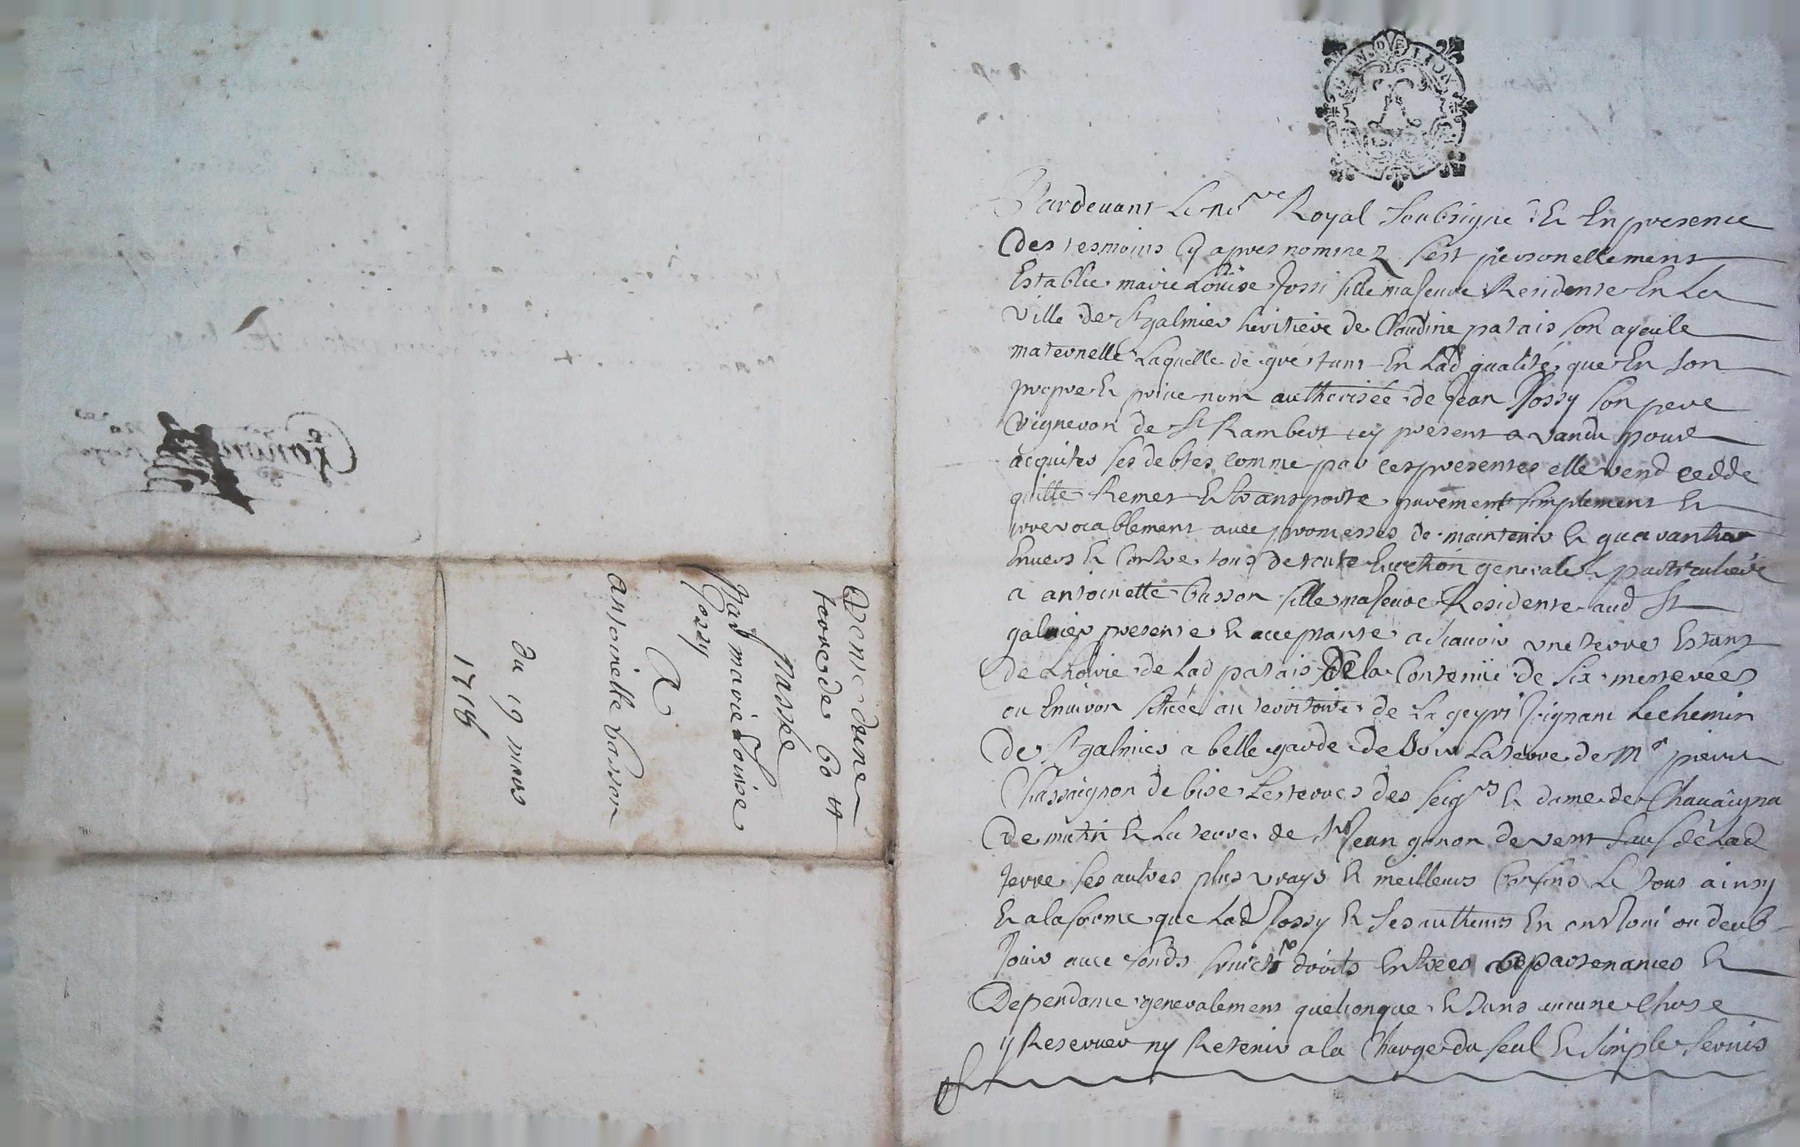 GEN DE LION
Pardevant Le no.re Royal Soubsigné & En presence
Des tesmoins Cy apres nommez sest personellement
Establie marie Loüise Jossi fille majeure Residente En La
Ville de St galmier heritiere de Claudine patais son ayeulle
maternelle Laquelle de gré tant En Lad qualité que En son
propre & privé nom authorisée de Jean Jossy son pere
Vigneron de St Rambert icy present a vandu pour
acquiter ses debtes comme par ces presentes elle vend cedde
quitte Remet & transporte purement simplement &
irrevocablement avec promesses de maintenir & guarantir
Envers & Contre tous de toute Eviction generale & particuliere
a antoinette basson fille majeure Residente aud St
galmier presente & acceptante a sçavoir une terre Estant
de Lhoirie de Lad patais De la Contenüe de Six mesterées
ou Environ scituée au territoire de La geyri Joignant Le chemin
De St galmier a belle garde de soir La terre de Mr pierre
Chassaignon de bise Les terres des seigrs & dame de Chavaigna
De matin & La terre de Sr Jean gonon de vent sauf de Lad
terre ses autres plus vrays & meilleurs Confins Le tout ainsy
& a la forme que Lad Jossy & ses autheurs En ont Joui ou deub
Jouir avec fonds fruicts droits Entrées appartenances &
Dependance generalement quelconque & sans aucune Chose
y Reserver ny Retenir a la Charge du seul & simple servis
Vente dune
terre de 60 tt
passée
Par marie Louise
Jossy
A
antoinette basson
Du 19 mars
1716